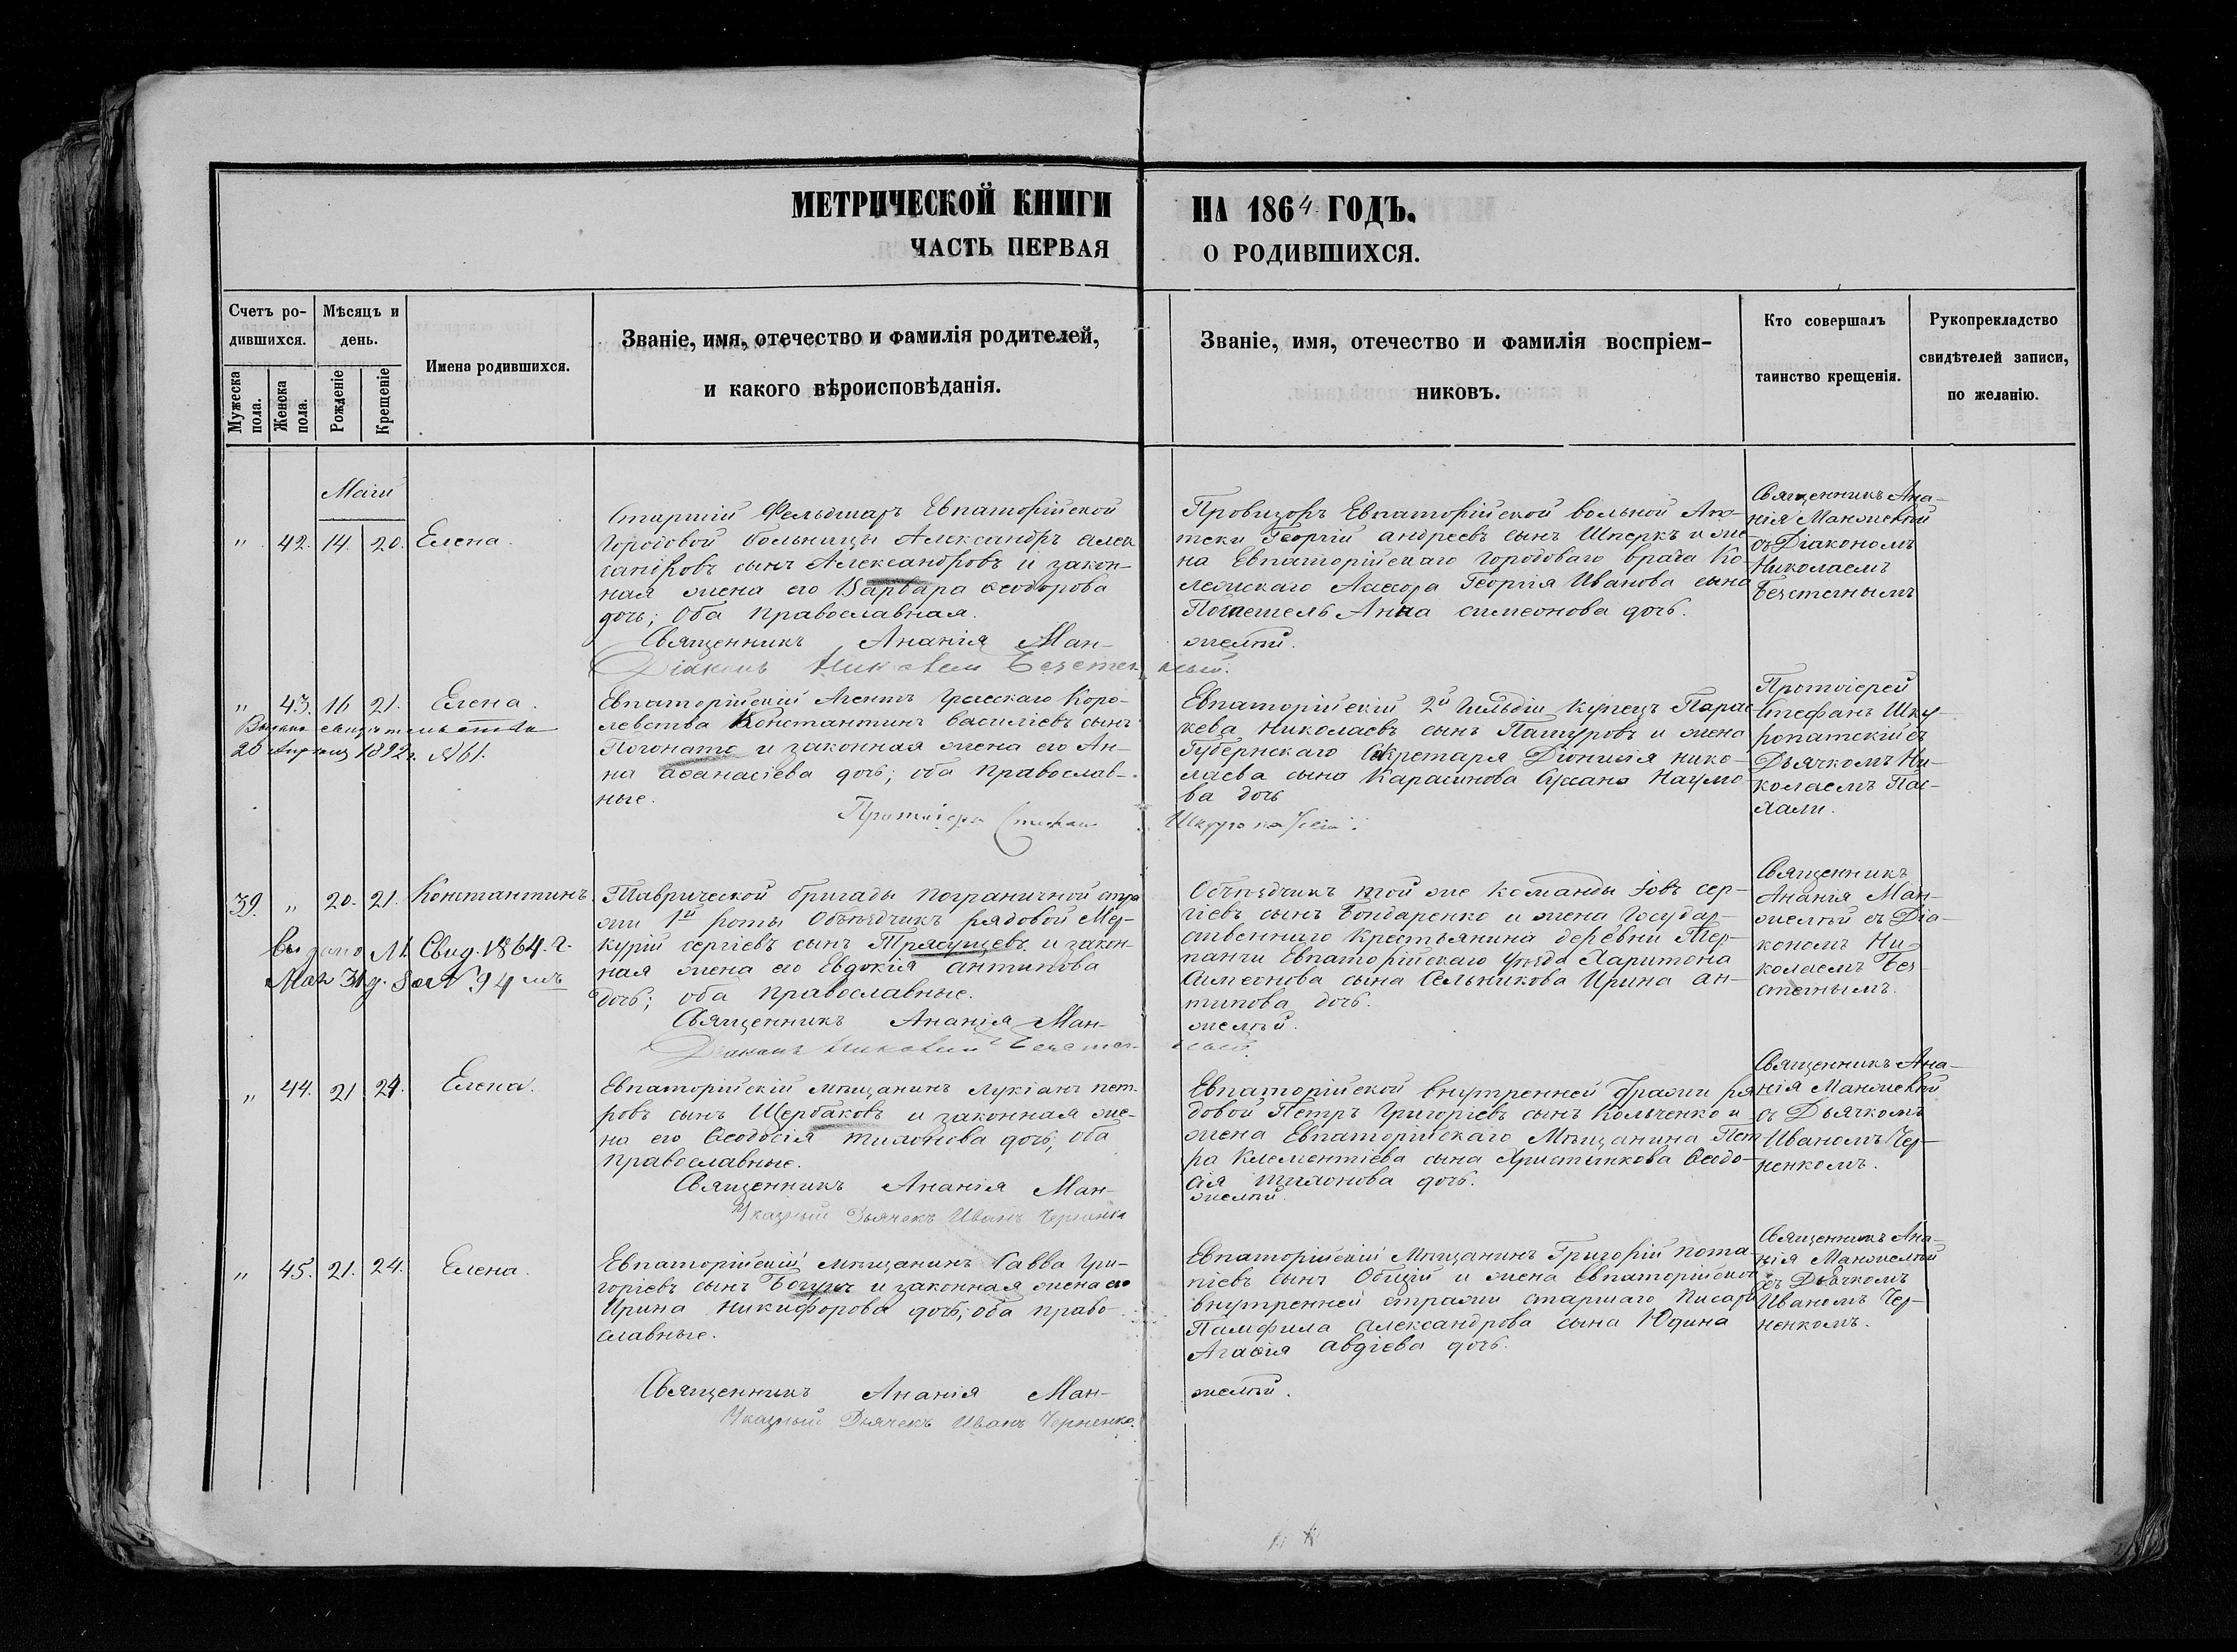 МЕТРИЧЕСКОЙ КНИГИ НА 1864 ГОДЪ.
ЧАСТЬ ПЕРВАЯ О РОДИВШИХСЯ.
Счетъ родившихся.
Мужеска пола.
Женска пола.
Мѣсяцъ и день.
Рожденіе
Крещеніе
Имена родившихся.
Званіе, имя, отечество и фамилія родителей,
и какого вѣроисповѣданія.
Званіе, имя, отечество и фамилія воспріем-
никовъ.
Кто совершалъ
таинство крещенія.
Рукоприкладство
свидѣтелей записи,
по желанію.
Маій
" 42. 14. 20. Елена.
Старшій Фельдшаръ Евпаторійской
городовой больницы Александръ Алек
сандровъ сынъ Александровъ и закон-
ная жена его Варвара Ѳеодорова
дочь; Оба православная.
Священникъ Ананія Ман-
Діаконъ Николай Безстен-
Провизоръ Евпаторійской вольной Апо-
теки Георгій Андреевъ сынъ Шперкъ и же-
на Евпаторійскаго городоваго врача Ко-
лежскаго Ассесора Георгія Иванова сына
Анна Симеонова дочь.
желѣй.
ный.
Священникъ Ана-
нія Манжелѣй
съ Діакономъ
Николаемъ
Безстеннымъ
" 43. 16 21. Елена.
Выдано свидѣтельство
20 Апрѣля 1892 г. № 61.
Евпаторійскій Агентъ Греческаго Коро-
левства Константинъ Василіевъ сынъ
Погонато и законная жена его Ан-
на Аѳанасіева дочь; оба православ-
ные.
Протоіерей Стефанъ
Евпаторійскій 2й Гильдіи купецъ Парас
кева Николаевъ сынъ Пашуровъ и жена
Губернскаго Секретаря Діонисія Нико-
лаева сына Наумо-
ва дочь
Протоіерей
Стефанъ Шку-
ропатскій съ
Дьячкомъ Ни-
колаемъ Пас-
хали.
39. " 20. 21. Константинъ.
Выдано М. Свид. 1864. г.
Мая 31 д. за № 94 мъ
Таврической бригады пограничной стра
жи 1й роты Объѣздчикъ рядовой Мер-
курій Сергіевъ сынъ Трясунцевъ и закон-
ная жена его Евдокія Антипова
дочь; оба православные.
Священникъ Ананія Ман-
Діаконъ Николай Безстен-
Объѣздчикъ той же команды Іовъ Сер-
гіевъ сынъ Бондаренко и жена Государ-
ственнаго Крестьянина деревни Тер-
панчи Евпаторійскаго уѣзда Харитона
Симеонова сына Сельникова Ирина Ан-
типова дочь.
желѣй.
ный.
Священникъ
Анания Ман-
желѣй съ Діа-
кономъ Ни-
колаемъ Без-
стеннымъ.
" 44. 21 24. Елена.
Евпаторійскій мѣщанинъ Лукіанъ Пет-
ровъ сынъ Щербаковъ и законная же-
на его Ѳеодосія Тимонова дочь; оба
православные.
Священникъ Ананія Ман-
Указный Дьячекъ Иванъ Черненко
Евпаторійской внутренней стражи ря
довой Петръ Григоріевъ сынъ Кольченко и
жена Евпаторійскаго Мѣщанина Пет
ра Клементіева сына Ѳеодо-
сія дочь.
желѣй.
Священникъ Ана-
нія Манжелѣй
съ Дьячкомъ
Иваномъ Чер-
ненкомъ.
" 45. 21. 24. Елена.
Евпаторійскій мѣщанинъ Савва Гри-
горіевъ сынъ и законная жена его
Ирина Никифорова дочь; оба право-
славные.
Священникъ Ананія Ман-
Указный Дьячекъ Иванъ Черненко.
Евпаторійскій Мѣщанинъ Григорій Пота-
піевъ сынъ Общій и жена Евпаторійской
внутренней стражи старшаго Писаря
Памфила Александрова сына Юдина
Агаѳія Авдіева дочь.
желѣй.
Священникъ Ана-
нія Манжелѣй
съ Дьячкомъ
Иваномъ Чер-
ненкомъ.